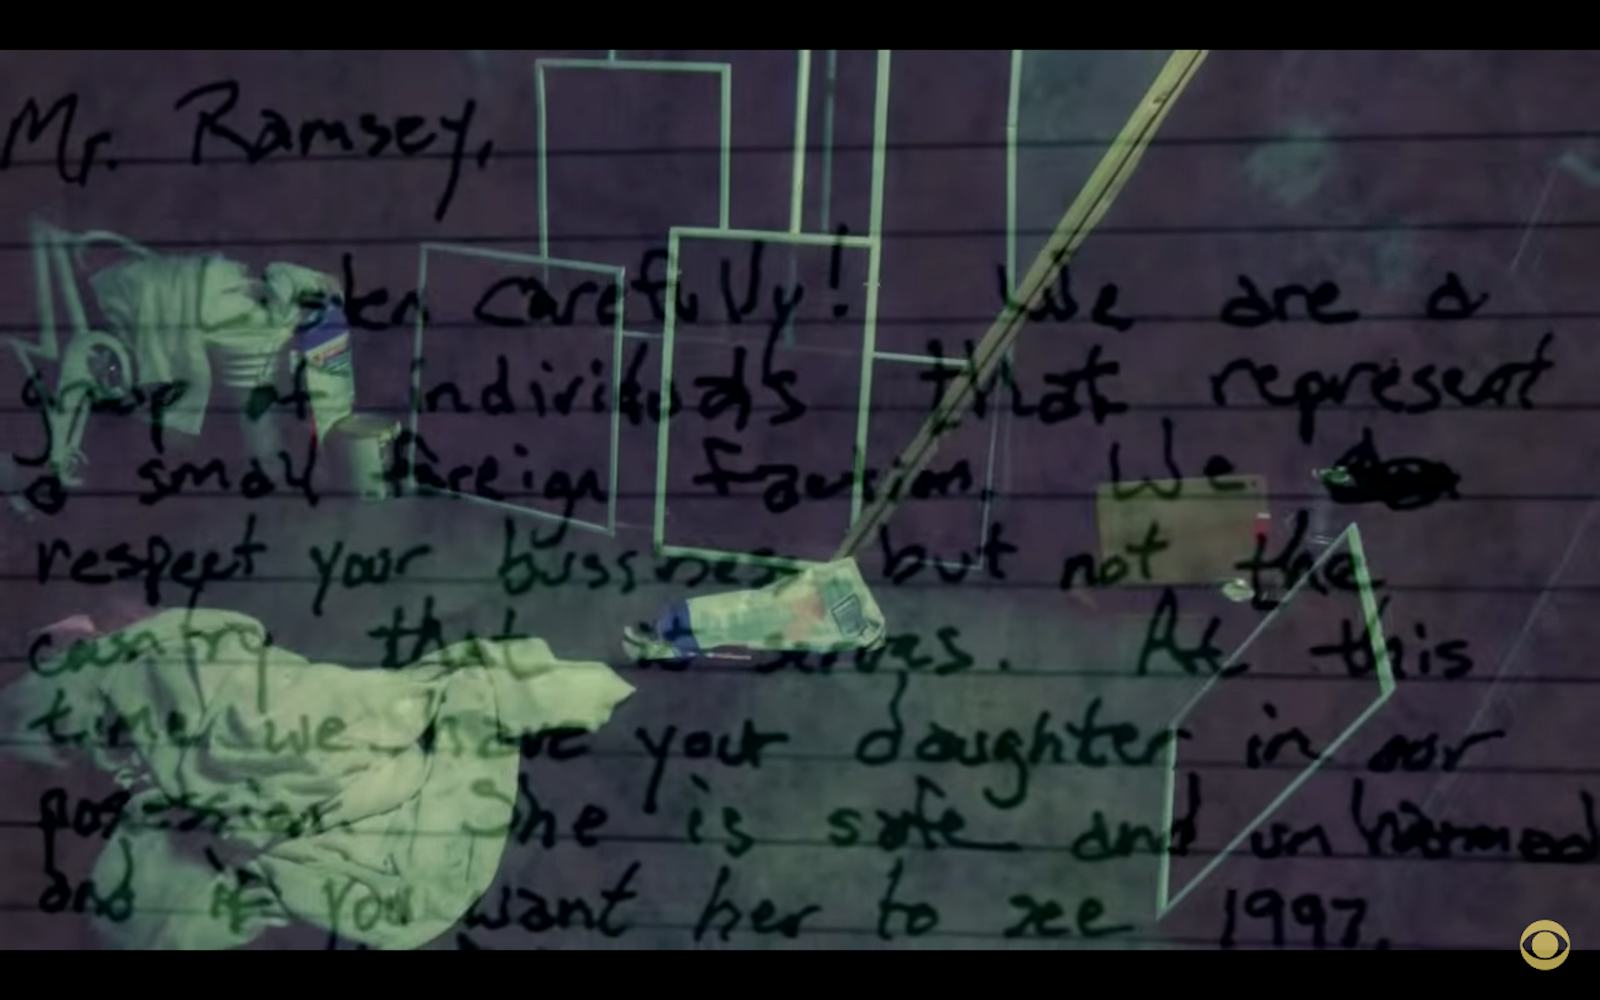 Mr. Ramsey,
Listen carefully! We are a
group of individuals that represent
a small foreign faction. We
respect your bussiness but not the
country that it serves. At this
time we have your daughter in our
posession. She is safe and unharmed
and if you want her to see 1997,